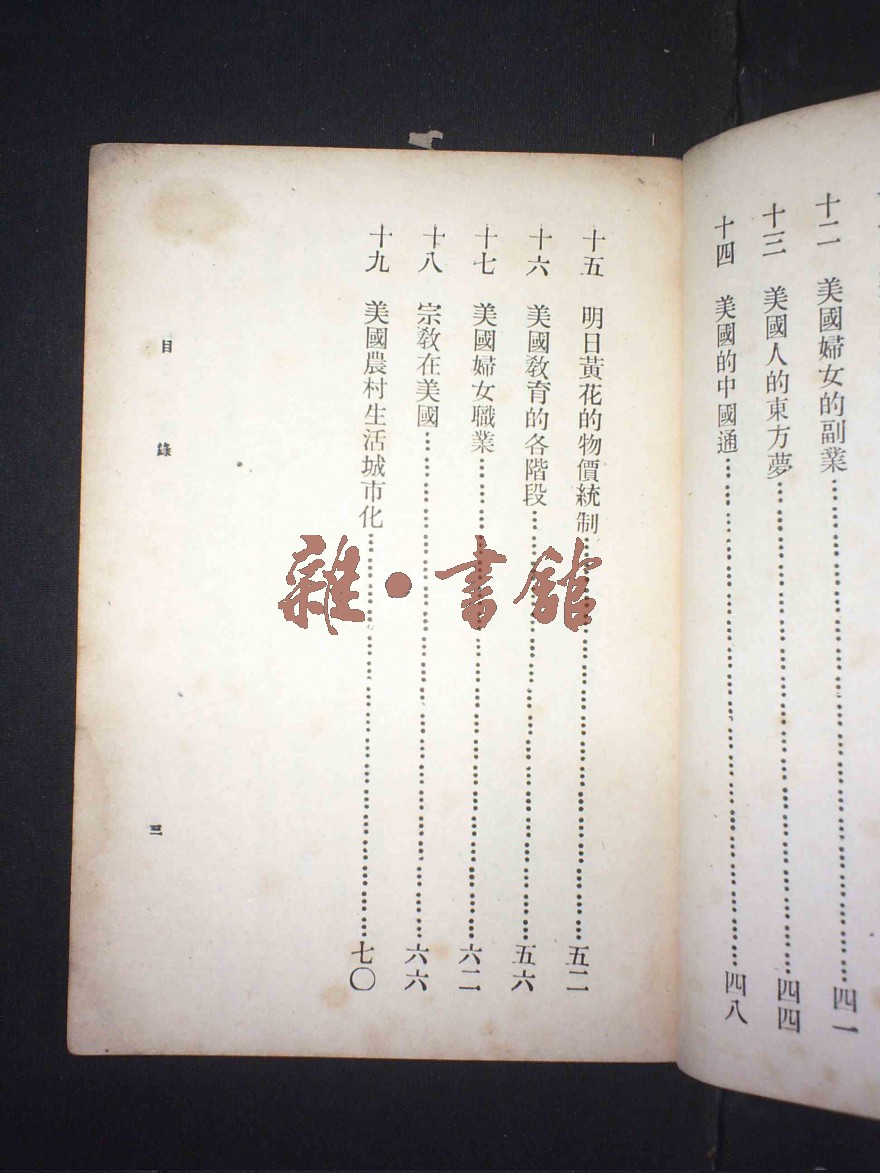 十二　美國婦女的副業……四一
十三　美國人的東方夢……四四
十四　美國的中國通……四八
十五　明日黃花的物價統制……五二
十六　美國教育的各階段……五六
十七　美國婦女職業……六二
十八　宗教在美國……六六
十九　美國農村生活城市化……七〇
目錄　三
雜·書館